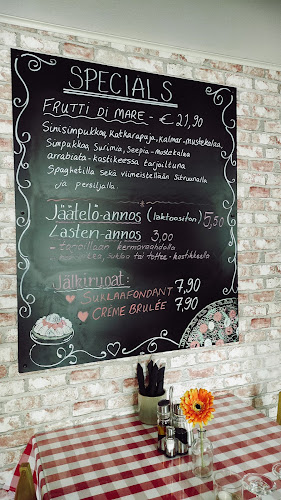 SPECIALS
FRUTTI DI MARE - € 21,90
Sinisimpukkaa, Katkarapuja, Kalmar-mustekalaa,
Simpukkaa, Surimia, Seepia-mustekalaa
arrabiata-kastikeessa tarjoiltuna
Spaghetilla sekä viimeistellään Sitruunalla
ja persiljalla.
Jäätelö-annos (laktoositon) 5,50
Lasten-annos 3,00
- tarjoillaan kermavaahdolla
suklaa tai toffee-kastikkeella
Jälkiruoat:
SUKLAAFONDANT 7,90
CRÈME BRULÉE 7,90